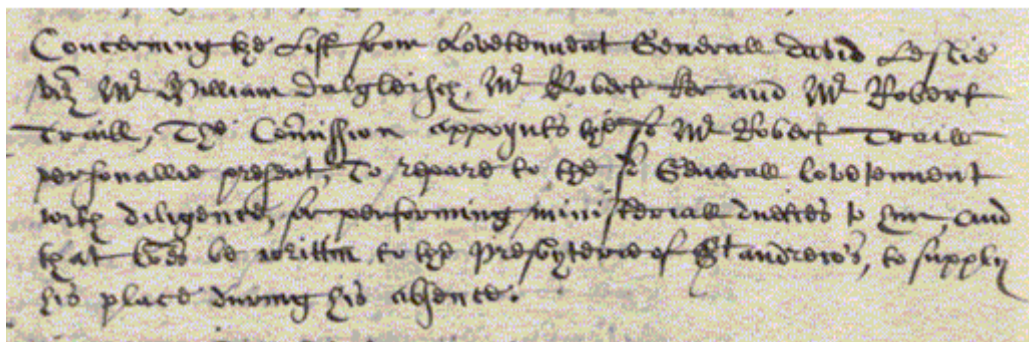 Concerning the List from Lovetennent Generall David Leslie
viz Mr William Dalgleisch, Mr Robert Ker and Mr Robert
Traill, The Comission appoynts the sd Mr Robert Traill
personallie present, To repare to the sd Generall lovetennent
with diligence, for performing ministeriall dueties to him, and
that be written to the Presbyterie of St andrews, to supply
his place during his absence.